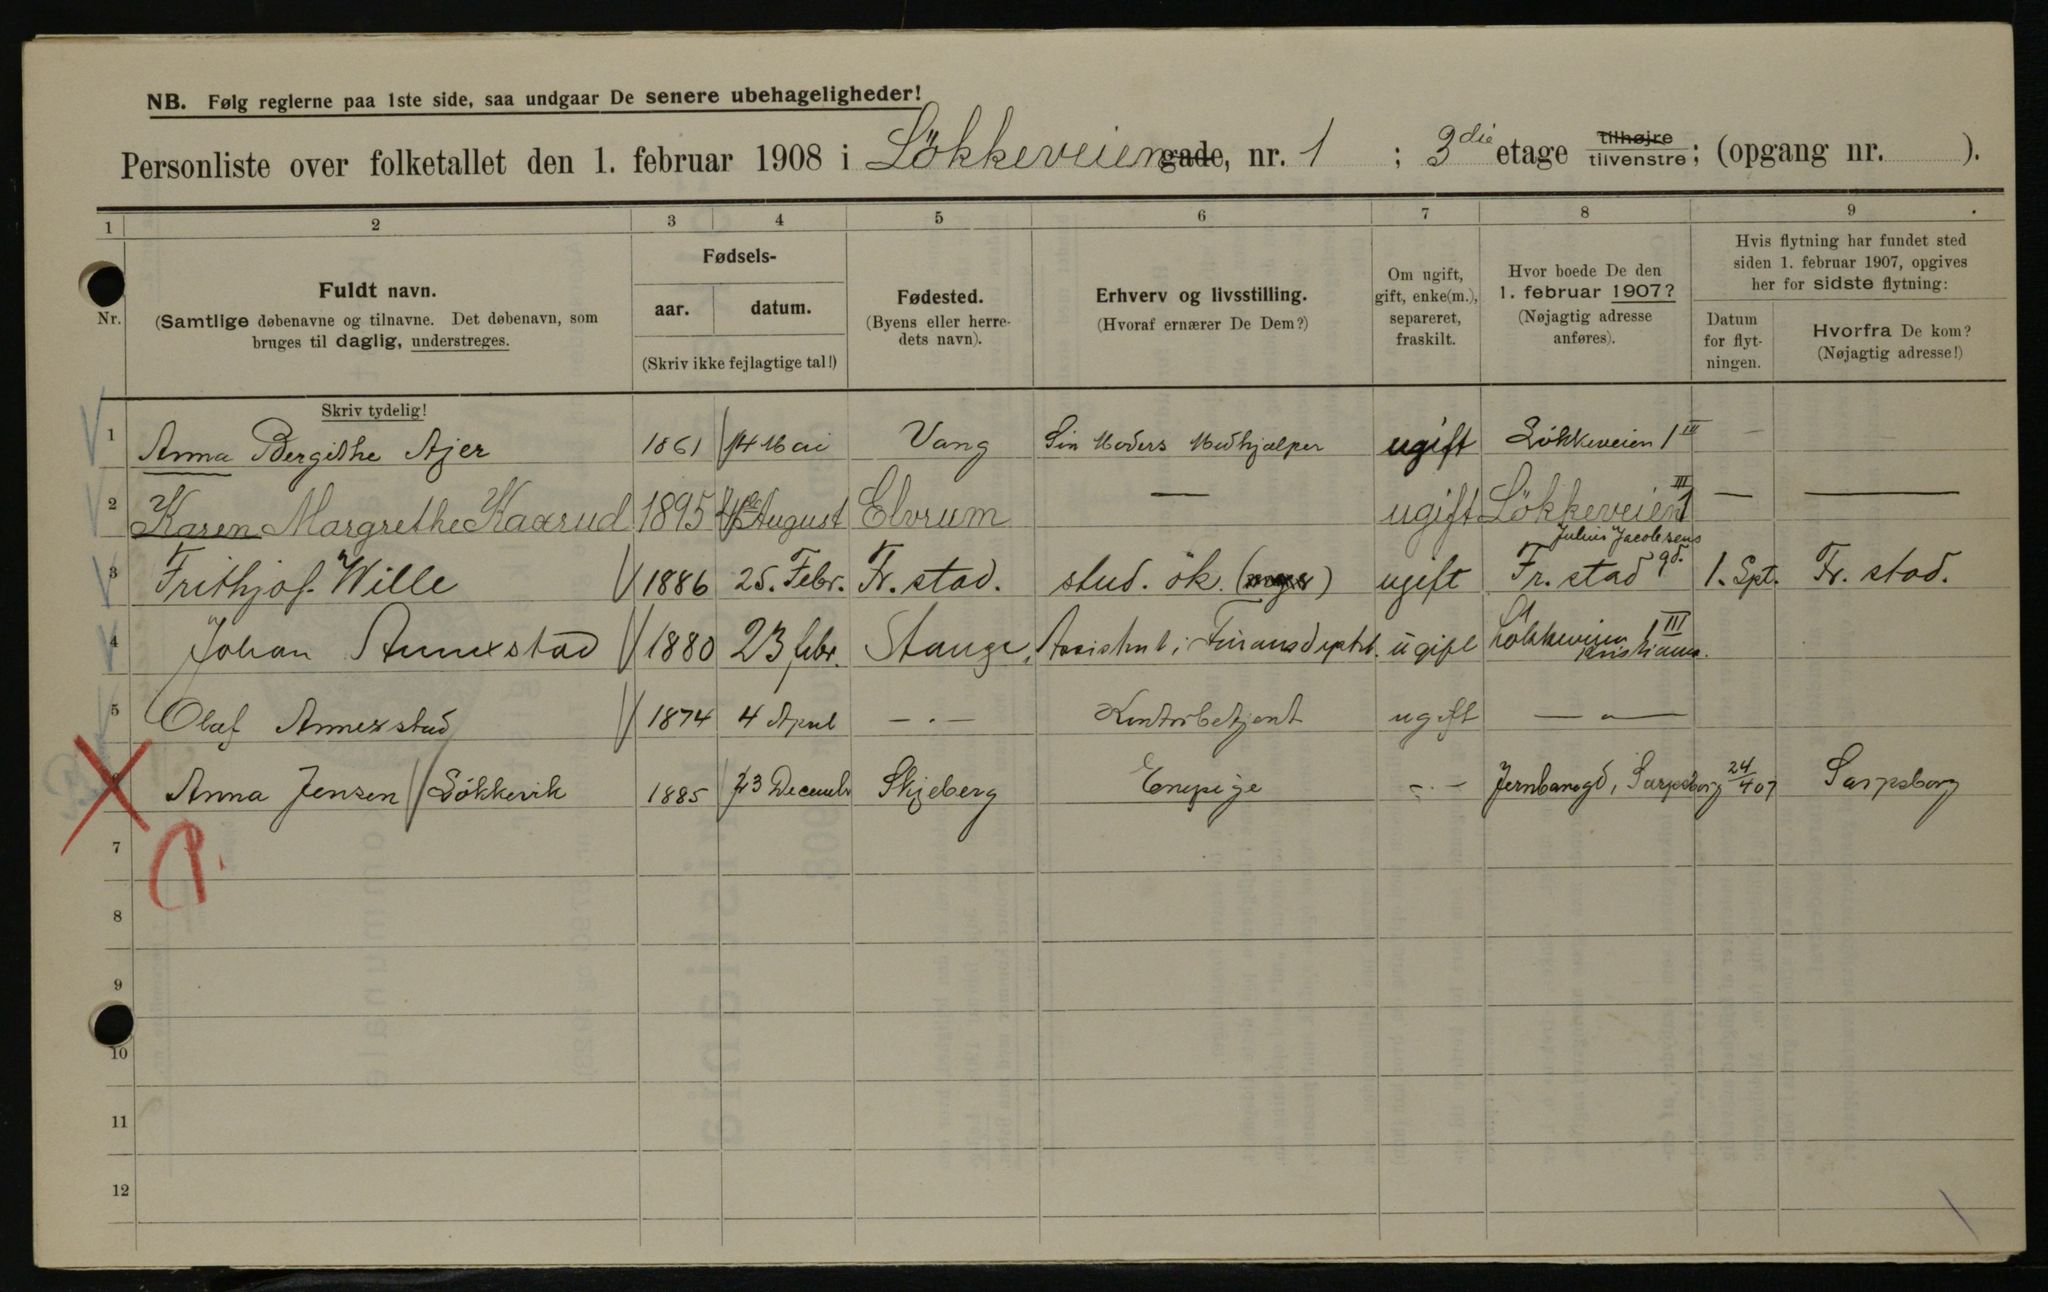 NB. Følg reglerne paa 1ste side, saa undgaar De senere ubehageligheder!
Personliste over folketallet den 1. februar 1908 i Lökkeveien gade, nr. 1 ; 3die etage tilhøjre tilvenstre; (opgang nr. ).
1 2 3 4 5 6 7 8 9
Nr.
Fuldt navn.
(Samtlige døbenavne og tilnavne. Det døbenavn, som
bruges til daglig, understreges.
Skriv tydelig!
Fødsels-
aar. datum.
(Skriv ikke fejlagtige tal!)
Fødested.
(Byens eller herre-
dets navn).
Erhverv og livsstilling.
(Hvoraf ernærer De Dem?)
Om ugift,
gift, enke(m.),
separeret,
fraskilt.
Hvor boede De den
1. februar 1907?
(Nøjagtig adresse
anføres).
Hvis flytning har fundet sted
siden 1. februar 1907, opgives
her for sidste flytning:
Datum
for flyt-
ningen.
Hvorfra De kom?
(Nøjagtig adresse!)
1 Anna Bergithe Ajer 1861 14 Mai Vang Sin Moders Medhjælper ugift Lökkeveien 1 III — —
2 Karen Margrethe Kaxrud 1895 4de August Elvrum — ugift Lökkeveien 1 III — —
Julius Jacobsens
3 Frithjof Wille 1886 25. Febr. Fr. stad. stud. ök. ugift Fr. stad gd. 1. Spt. Fr. stad.
4 Johan Annexstad 1880 23 febr. Stange, Assistent i Finansdeptet. ugift Lökkeveien 1 III
Kristiania.
5 Olaf Annexstad 1874 4 April — . — Kontorbetjent ugift — " —
6 Anna Jensen / Lökkevik 1885 23 Decembr Skjeberg Enepige - . - Jernbanegd, Sarpsborg 24/4 07 Sarpsborg
P.
7
8
9
10
11
12